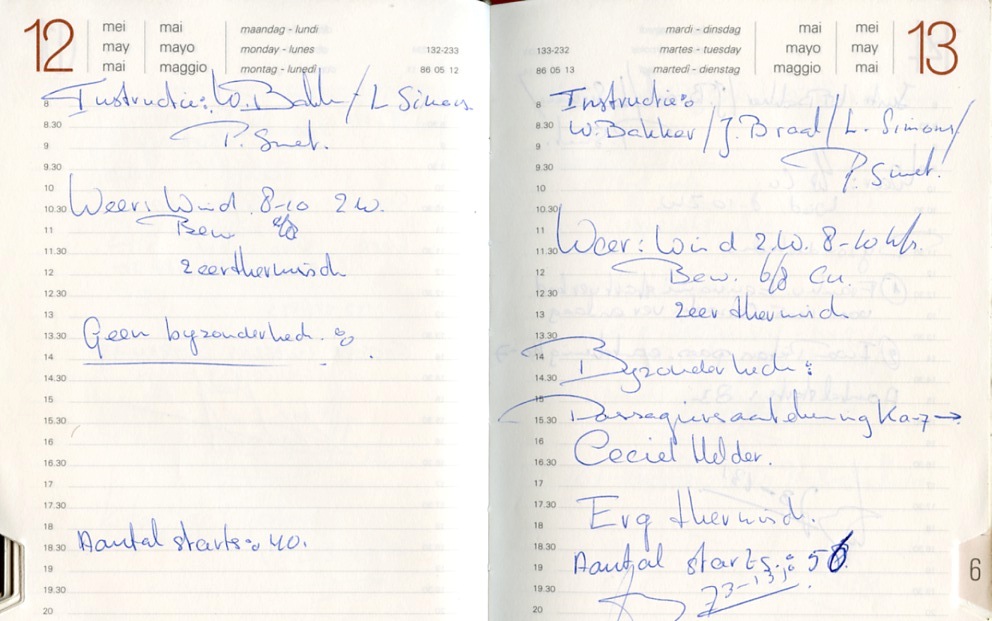 12
mei mai
may mayo
mai maggio
maandag - lundi
monday - lunes
montag - lunedì
132-233
86 05 12
8 Instructie: W. Bakk / L Simons
8.30
P. Smet.
9
9.30
10
10.30 Weer: Wind 8-10 ZW.
11 Bew.
11.30
12 Zeer thermisch
12.30
13
13.30 Geen byzonderhed. :
14
14.30
15
15.30
16
16.30
17
17.30
18
18.30 Aantal starts: 40.
19
19.30
20
133-232
86 05 13
mardi - dinsdag
martes - tuesday
martedì - dienstag
mai mei
mayo may
maggio mai
13
8 Instructie:
8.30 W. Bakker / J. Braad / L. Simons /
9
9.30 P. Smet.
10
10.30
11 Weer: Wind Z.W. 8-10 kts.
11.30
12 Bew. 6/8 Cu.
12.30
13 Zeer thermisch
13.30
14 Byzonderhed :
14.30
15
15.30 Passagiersaantekening Ka-7 →
16 Ceciel Helder.
16.30
17
17.30
18 Erg thermisch.
18.30
19 Aantal starts.: 56
19.30 73-13
20
6